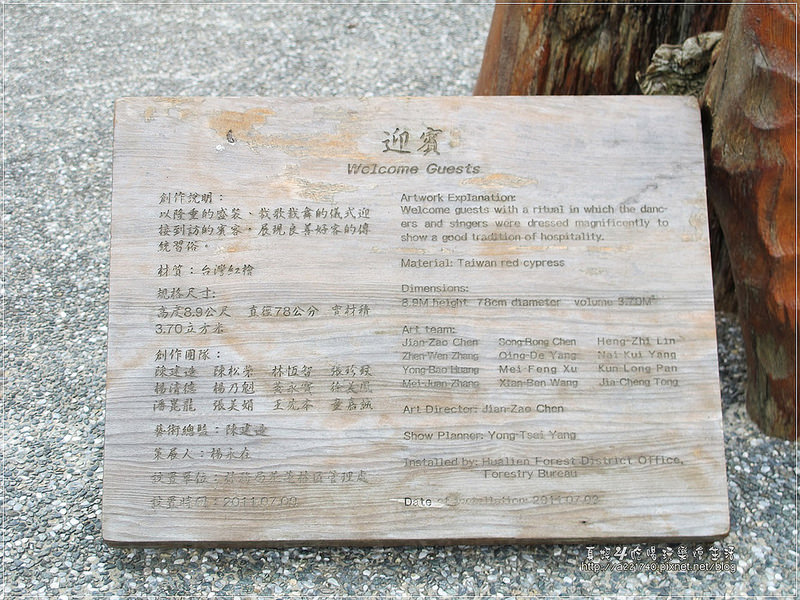 迎賓
Welcome Guests
創作說明：
以隆重的盛裝、載歌載舞的儀式迎
接到訪的賓客，展現良善好客的傳
統習俗。
材質：台灣紅檜
規格尺寸：
高度8.9公尺 直徑78公分 實材積
3.70立方米
創作團隊：
陳建造 陳松榮 林恆智
楊清德 楊乃魁
潘崑龍 張美娟 童嘉誠
藝術總監：陳建造
策展人：楊永在
設置單位：林務局花蓮林區管理處
設置時間：2011.07.09
Artwork Explanation:
Welcome guests with a ritual in which the danc-
ers and singers were dressed magnificently to
show a good tradition of hospitality.
Material: Taiwan red cypress
Dimensions:
8.9M height 78cm diameter volume 3.70M³
Art team:
Jian-Zao Chen Song-Rong Chen Heng-Zhi Lin
Zhen-Wen Zhang Qing-De Yang Nai-Kui Yang
Yong-Bao Huang Mei-Feng Xu Kun-Long Pan
Mei-Juan Zhang Xian-Ben Wang Jia-Cheng Tong
Art Director: Jian-Zao Chen
Show Planner: Yong-Tsai Yang
Installed by: Hualien Forest District Office,
Forestry Bureau
Date of installation: 2011.07.09
http://a221740.pixnet.net/blog